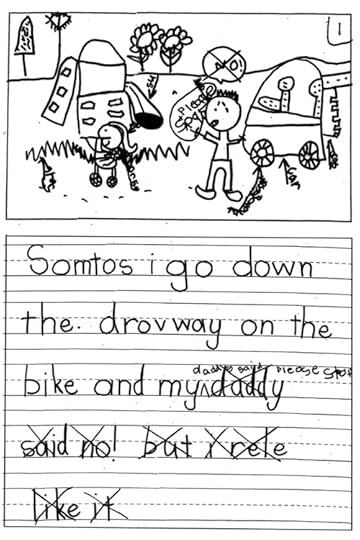 1
NO
Please
Stop
Somtos i go down
the. drovway on the
daddy said Please stop
bike and my daddy
said no! but i rele
like it